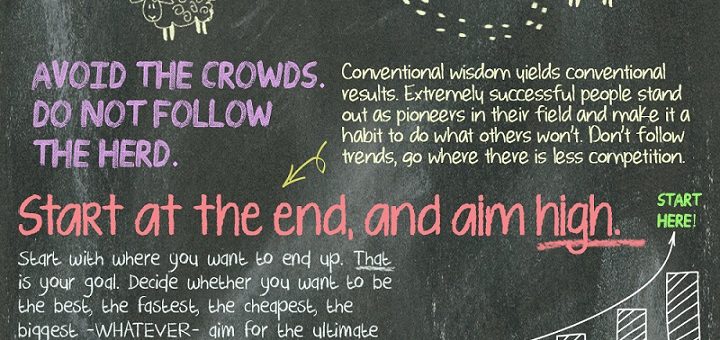 AVOID THE CROWDS.
DO NOT FOLLOW
THE HERD.
Conventional wisdom yields conventional
results. Extremely successful people stand
out as pioneers in their field and make it a
habit to do what others won't. Don't follow
trends, go where there is less competition.
Start at the end, and aim high.
START
HERE!
Start with where you want to end up. That
is your goal. Decide whether you want to be
the best, the fastest, the cheapest, the
biggest -WHATEVER- aim for the ultimate